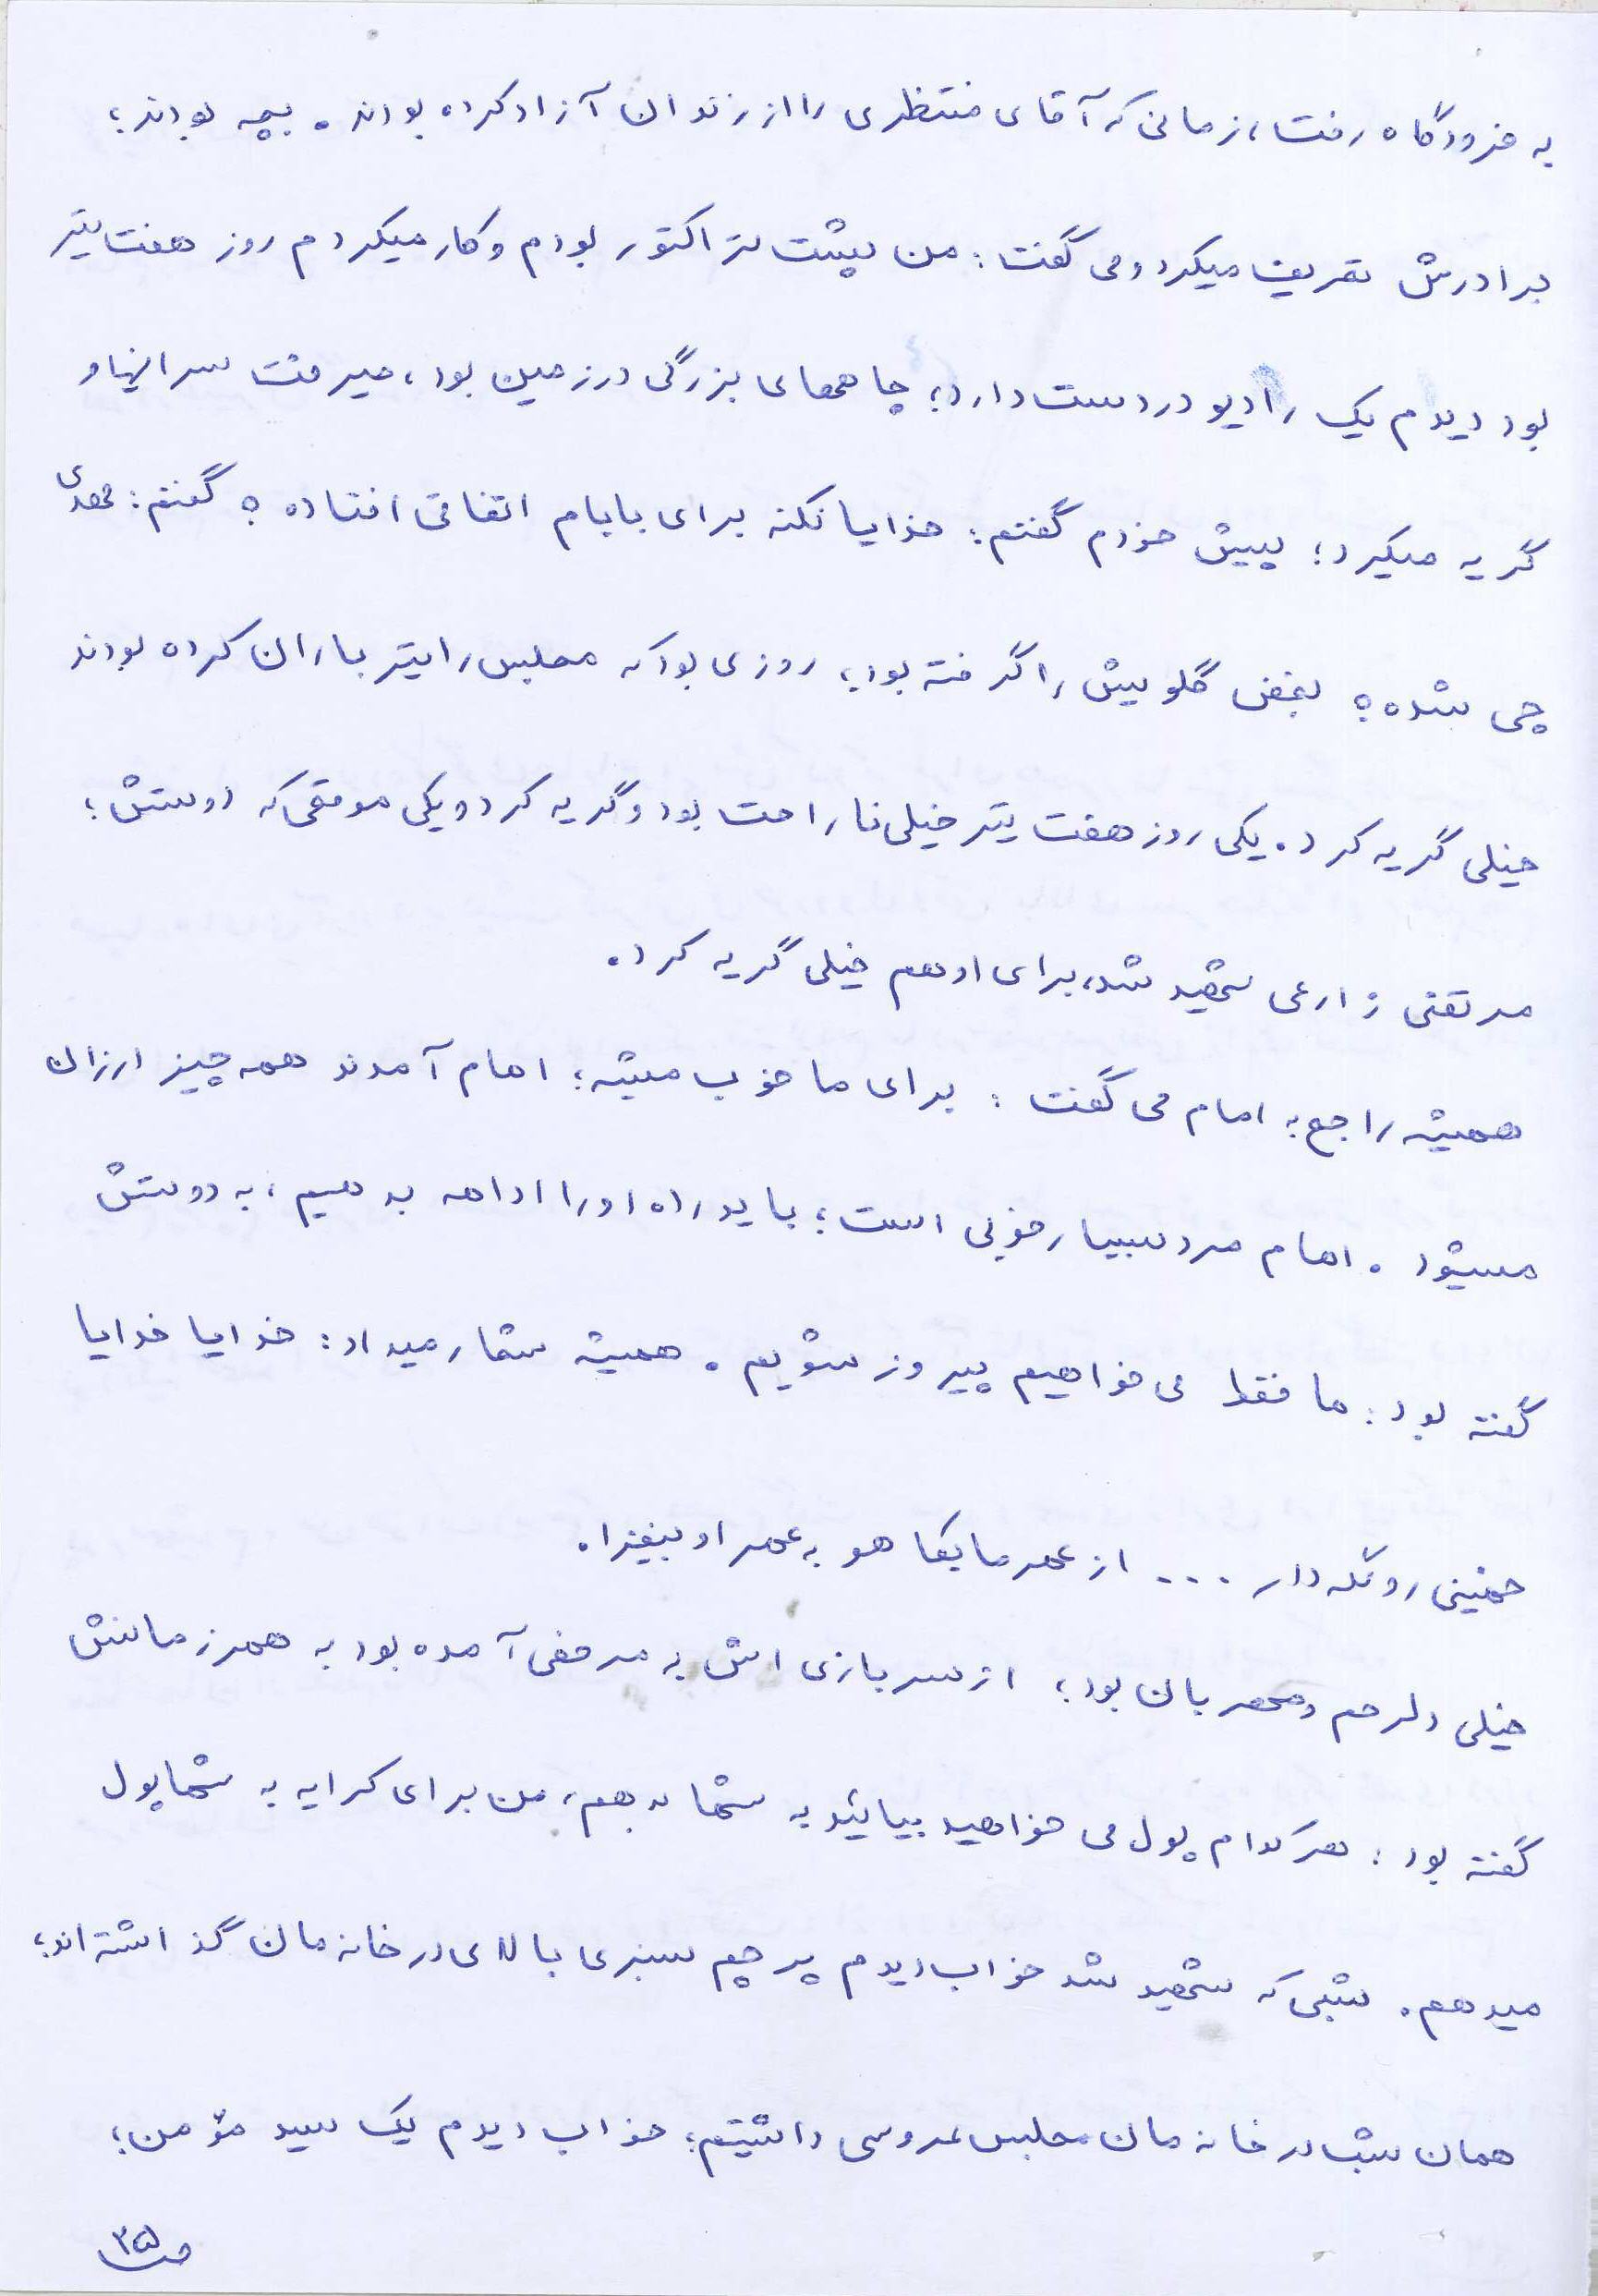 به فرودگاه رفت، زمانی که آقای منتظری را از زندان آزاد کرده بودند. بچه بودند؛
برادرش تعریف میکرد و می گفت: من پشت تراکتور بودم و کار میکردم روز هفت تیر
بود دیدم یک رادیو در دست دارد؛ چاههای بزرگی در زمین بود، میرفت سر انها و
گریه میکرد؛ پیش خودم گفتم: خدایا نکنه برای بابام اتفاقی افتاده؟ گفتم: مهدی
چی شده؟ بغض گلویش را گرفته بود؛ روزی بود که مجلس را تیر باران کرده بودند
خیلی گریه کرد. یکی روز هفت تیر خیلی ناراحت بود و گریه کرد و یکی موقعی که دوستش؛
مرتضی زارعی شهید شد، برای او هم خیلی گریه کرد.
همیشه راجع به امام می گفت: برای ما خوب میشه؛ امام آمدند همه چیز ارزان
میشود. امام مرد بسیار خوبی است؛ باید راه او را ادامه بدهیم، به دوستش
گفته بود: ما فقط می خواهیم پیروز شویم. همیشه شعار میداد: خدایا خدایا
خمینی رو نگه دار ... از عمر ما بکاه و به عمر او بیفزا.
خیلی دلرحم و مهربان بود؛ از سربازی اش به مرخصی آمده بود به همرزمانش
گفته بود: هر کدام پول می خواهید بیائید به شما بدهم، من برای کرایه به شما پول
میدهم. شبی که شهید شد خواب دیدم پرچم سبزی بالای در خانه مان گذاشته اند؛
همان شب در خانه مان مجلس عروسی داشتیم؛ خواب دیدم یک سید مؤمن؛
ص۳۵